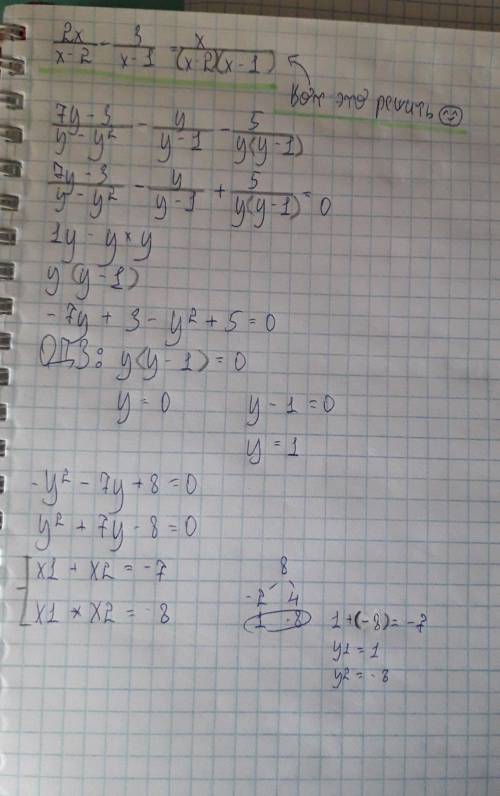 2x/(x-2) - 3/(x-1) = x/((x-2)(x-1))
Вот это решить
(7y-3)/(y-y²) - y/(y-1) - 5/(y(y-1))
(7y-3)/(y-y²) - y/(y-1) + 5/(y(y-1)) = 0
1y - y * y
y(y-1)
-7y + 3 - y² + 5 = 0
ОДЗ: y(y-1) = 0
y = 0 y - 1 = 0
y = 1
-y² - 7y + 8 = 0
y² + 7y - 8 = 0
x1 + x2 = -7
x1 * x2 = -8
8
-2 4
1 -8
1+(-8) = -7
y1 = 1
y2 = -8